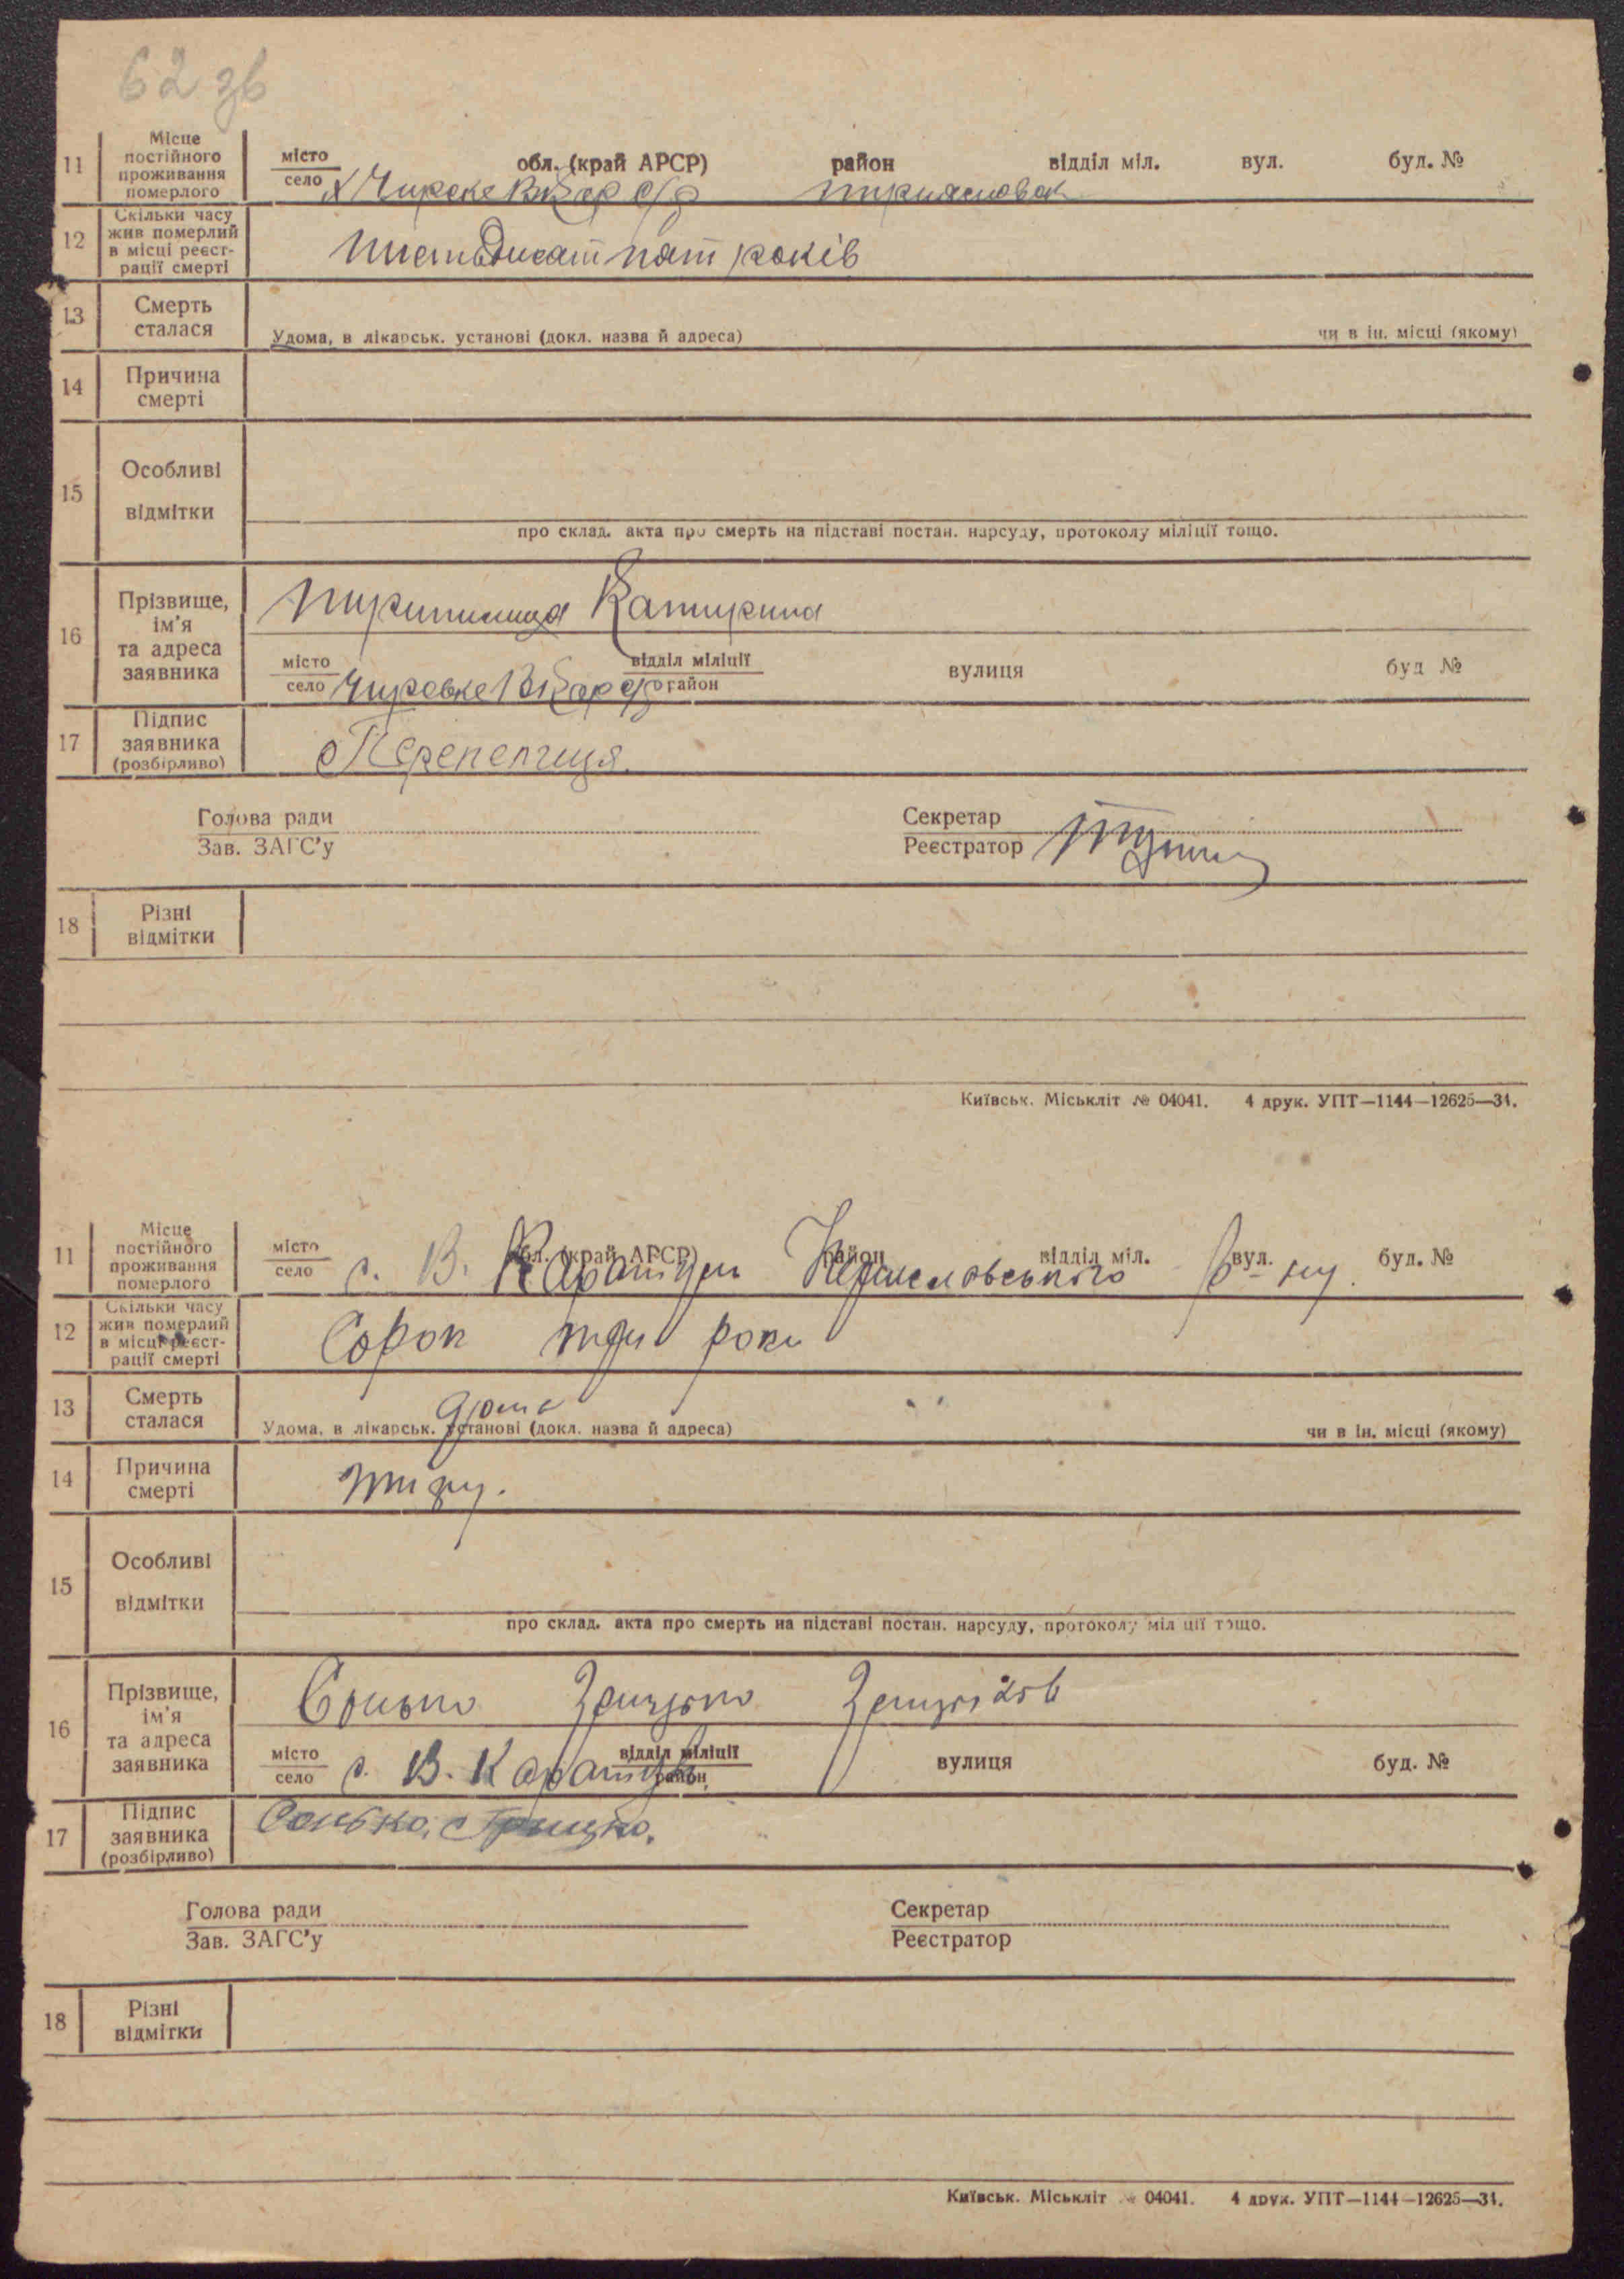 62 зв
11
Місце постійного проживання померлого
місто
село
обл. (край АРСР) район відділ міл. вул. буд. №
12
Скільки часу жив померлий в місці реєстрації смерті
пят років
13
Смерть сталася
Удома, в лікарськ. установі (докл. назва й адреса) чи в ін. місці (якому)
14
Причина смерті
15
Особливі відмітки
про склад. акта про смерть на підставі постан. нарсуду, протоколу міліції тощо.
16
Прізвище, ім'я та адреса заявника
місто
село
відділ міліції
район
вулиця буд №
17
Підпис заявника (розбірливо)
Перепелиця.
Голова ради
Зав. ЗАГС'у
Секретар
Реєстратор
18
Різні відмітки
Київськ. Міськліт № 04041. 4 друк. УПТ—1144—12625—34.
11
Місце постійного проживання померлого
місто
село
обл. (край АРСР) район відділ міл. вул. буд. №
с. В. Каратули р-ну.
12
Скільки часу жив померлий в місці реєстрації смерті
Сорок три роки
13
Смерть сталася
дома
Удома, в лікарськ. установі (докл. назва й адреса) чи в ін. місці (якому)
14
Причина смерті
15
Особливі відмітки
про склад. акта про смерть на підставі постан. нарсуду, протоколу міліції тощо.
16
Прізвище, ім'я та адреса заявника
Сонько
місто
село
с. В. Каратул
відділ міліції
район
вулиця буд. №
17
Підпис заявника (розбірливо)
Сонько, Грицко.
Голова ради
Зав. ЗАГС'у
Секретар
Реєстратор
18
Різні відмітки
Київськ. Міськліт № 04041. 4 друк. УПТ—1144—12625—34.